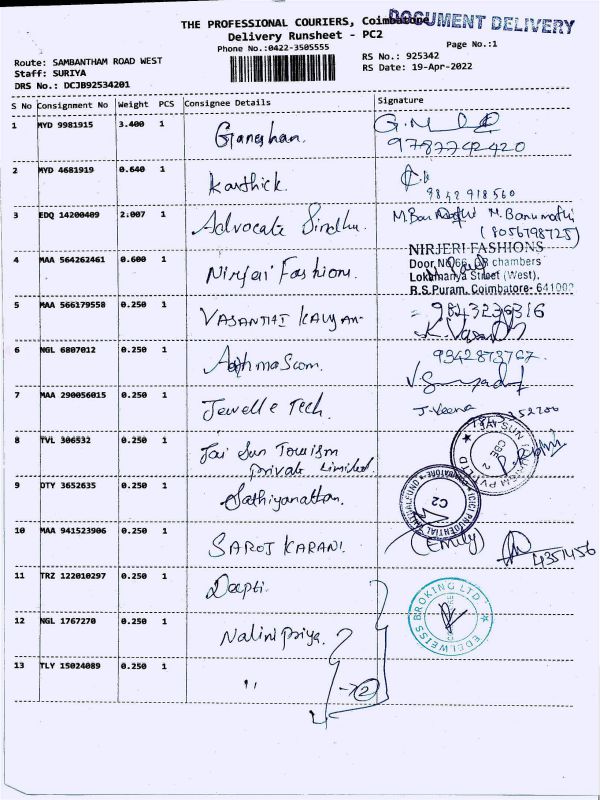 THE PROFESSIONAL COURIERS, Coimbatore
DOCUMENT DELIVERY
Delivery Runsheet - PC2
Phone No.:0422-3505555
Page No.:1
Route: SAMBANTHAM ROAD WEST
RS No.: 925342
Staff: SURIYA
RS Date: 19-Apr-2022
DRS No.: DCJB92534201
S No Consignment No Weight PCS Consignee Details Signature
1 MYD 9981915 3.400 1 Ganeshan.
9787742420
2 MYD 4681919 0.640 1 Karthick.
9842 918560
3 EDQ 14200409 2.007 1 Advocate Sindhu. M. Banumathi
(8056798725)
4 MAA 564262461 0.600 1 Nirjeri Fashion.
NIRJERI FASHIONS
Door NO66, chambers
Lokamanya Street (West),
R.S.Puram, Coimbatore- 641002
5 MAA 566179558 0.250 1 VASANTHI KALYAN
9843236316
6 NGL 6807012 0.250 1
9342873767.
7 MAA 290056015 0.250 1 Jewelle Tech. J. Veena
8 TVL 306532 0.250 1 Jai Sun Tourism
Private Limited
9 DTY 3652635 0.250 1 Sathiyanathan.
ICICI PRUDENTIAL
C2
10 MAA 941523906 0.250 1 SAROJ KARANI. (Emily)
4351456
11 TRZ 122010297 0.250 1 Deepti.
EDELWEISS BROKING LTD.
12 NGL 1767270 0.250 1 Nalinipriya.
13 TLY 15024089 0.250 1 "
2